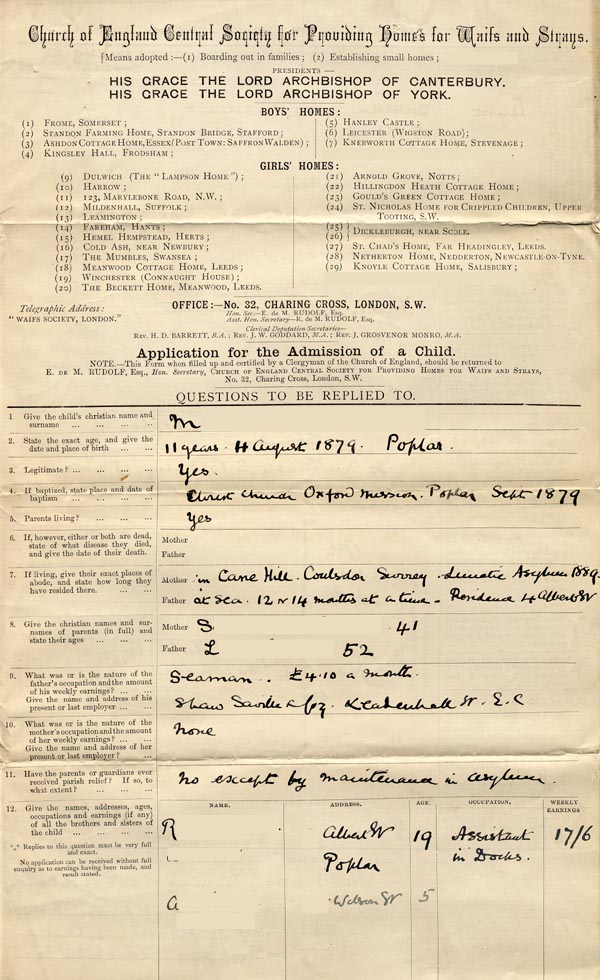 Church of England Central Society for Providing Homes for Waifs and Strays.
[Means adopted:—(1) Boarding out in families; (2) Establishing small homes;
PRESIDENTS—
HIS GRACE THE LORD ARCHBISHOP OF CANTERBURY.
HIS GRACE THE LORD ARCHBISHOP OF YORK.
BOYS' HOMES:
(1) FROME, SOMERSET;
(2) STANDON FARMING HOME, STANDON BRIDGE, STAFFORD;
(3) ASHDON COTTAGE HOME, ESSEX (POST TOWN: SAFFRON WALDEN);
(4) KINGSLEY HALL, FRODSHAM;
(5) HANLEY CASTLE;
(6) LEICESTER (WIGSTON ROAD);
(7) KNEBWORTH COTTAGE HOME, STEVENAGE;
GIRLS' HOMES:
(9) DULWICH (THE "LAMPSON HOME");
(10) HARROW;
(11) 123, MARYLEBONE ROAD, N.W.;
(12) MILDENHALL, SUFFOLK;
(13) LEAMINGTON;
(14) FAREHAM, HANTS;
(15) HEMEL HEMPSTEAD, HERTS;
(16) COLD ASH, NEAR NEWBURY;
(17) THE MUMBLES, SWANSEA;
(18) MEANWOOD COTTAGE HOME, LEEDS;
(19) WINCHESTER (CONNAUGHT HOUSE);
(20) THE BECKETT HOME, MEANWOOD, LEEDS.
(21) ARNOLD GROVE, NOTTS;
(22) HILLINGDON HEATH COTTAGE HOME;
(23) GOULD'S GREEN COTTAGE HOME;
(24) ST. NICHOLAS HOME FOR CRIPPLED CHILDREN, UPPER
TOOTING, S.W.
(25)
(26) DICKLEBURGH, NEAR SCOLE.
(27) ST. CHAD'S HOME, FAR HEADINGLEY, LEEDS.
(28) NETHERTON HOME, NEDDERTON, NEWCASTLE-ON-TYNE.
(29) KNOYLE COTTAGE HOME, SALISBURY;
Telegraphic Address:
"WAIFS SOCIETY, LONDON."
OFFICE:—No. 32, CHARING CROSS, LONDON, S.W.
Hon. Sec.—E. DE M. RUDOLF, Esq.
Asst. Hon. Secretary—R. DE M. RUDOLF, Esq.
Clerical Deputation Secretaries—
REV. H. D. BARRETT, B.A.; REV. J. W. GODDARD, M.A.; REV. J. GROSVENOR MONRO, M.A.
Application for the Admission of a Child.
NOTE.—This Form when filled up and certified by a Clergyman of the Church of England, should be returned to
E. DE M. RUDOLF, Esq., Hon. Secretary, CHURCH OF ENGLAND CENTRAL SOCIETY FOR PROVIDING HOMES FOR WAIFS AND STRAYS,
No. 32, Charing Cross, London, S.W.
QUESTIONS TO BE REPLIED TO.
1 Give the child's christian name and
surname ... ... ... ...
M
2. State the exact age, and give the
date and place of birth ... ...
11 years. 4 August 1879. Poplar.
3. Legitimate? ... ... ... ...
Yes.
4. If baptized, state place and date of
baptism ... ... ... ...
Christ Church Oxford Mission. Poplar Sept 1879
5. Parents living? ... ... ...
Yes
6. If, however, either or both are dead,
state of what disease they died,
and give the date of their death.
Mother
Father
7. If living, give their exact places of
abode, and state how long they
have resided there. ... ...
Mother in Cane Hill. Coulsdon Surrey. Lunatic Asylum 1889.
Father at Sea. 12 or 14 months at a time. Residence 4 Albert St
8. Give the christian names and sur-
names of parents (in full) and
state their ages ... ...
Mother S 41
Father L 52
9. What was or is the nature of the
father's occupation and the amount
of his weekly earnings? ... ...
Give the name and address of his
present or last employer ... ...
Seaman. £4.10 a month.
Shaw Saville & Co. Leadenhall St. E.C
10. What was or is the nature of the
mother's occupation and the amount
of her weekly earnings? ... ...
Give the name and address of her
present or last employer? ... ...
None
11. Have the parents or guardians ever
received parish relief? If so, to
what extent? ... ... ...
No except by maintenance in asylum.
12. Give the names, addresses, ages,
occupations and earnings (if any)
of all the brothers and sisters of
the child ... ... ...
*** Replies to this question must be very full
and exact.
No application can be received without full
enquiry as to earnings having been made, and
result stated.
NAME. ADDRESS. AGE. OCCUPATION. WEEKLY EARNINGS
R Albert St 19 Assistant 17/6
Poplar in Docks.
A Wilson St 5